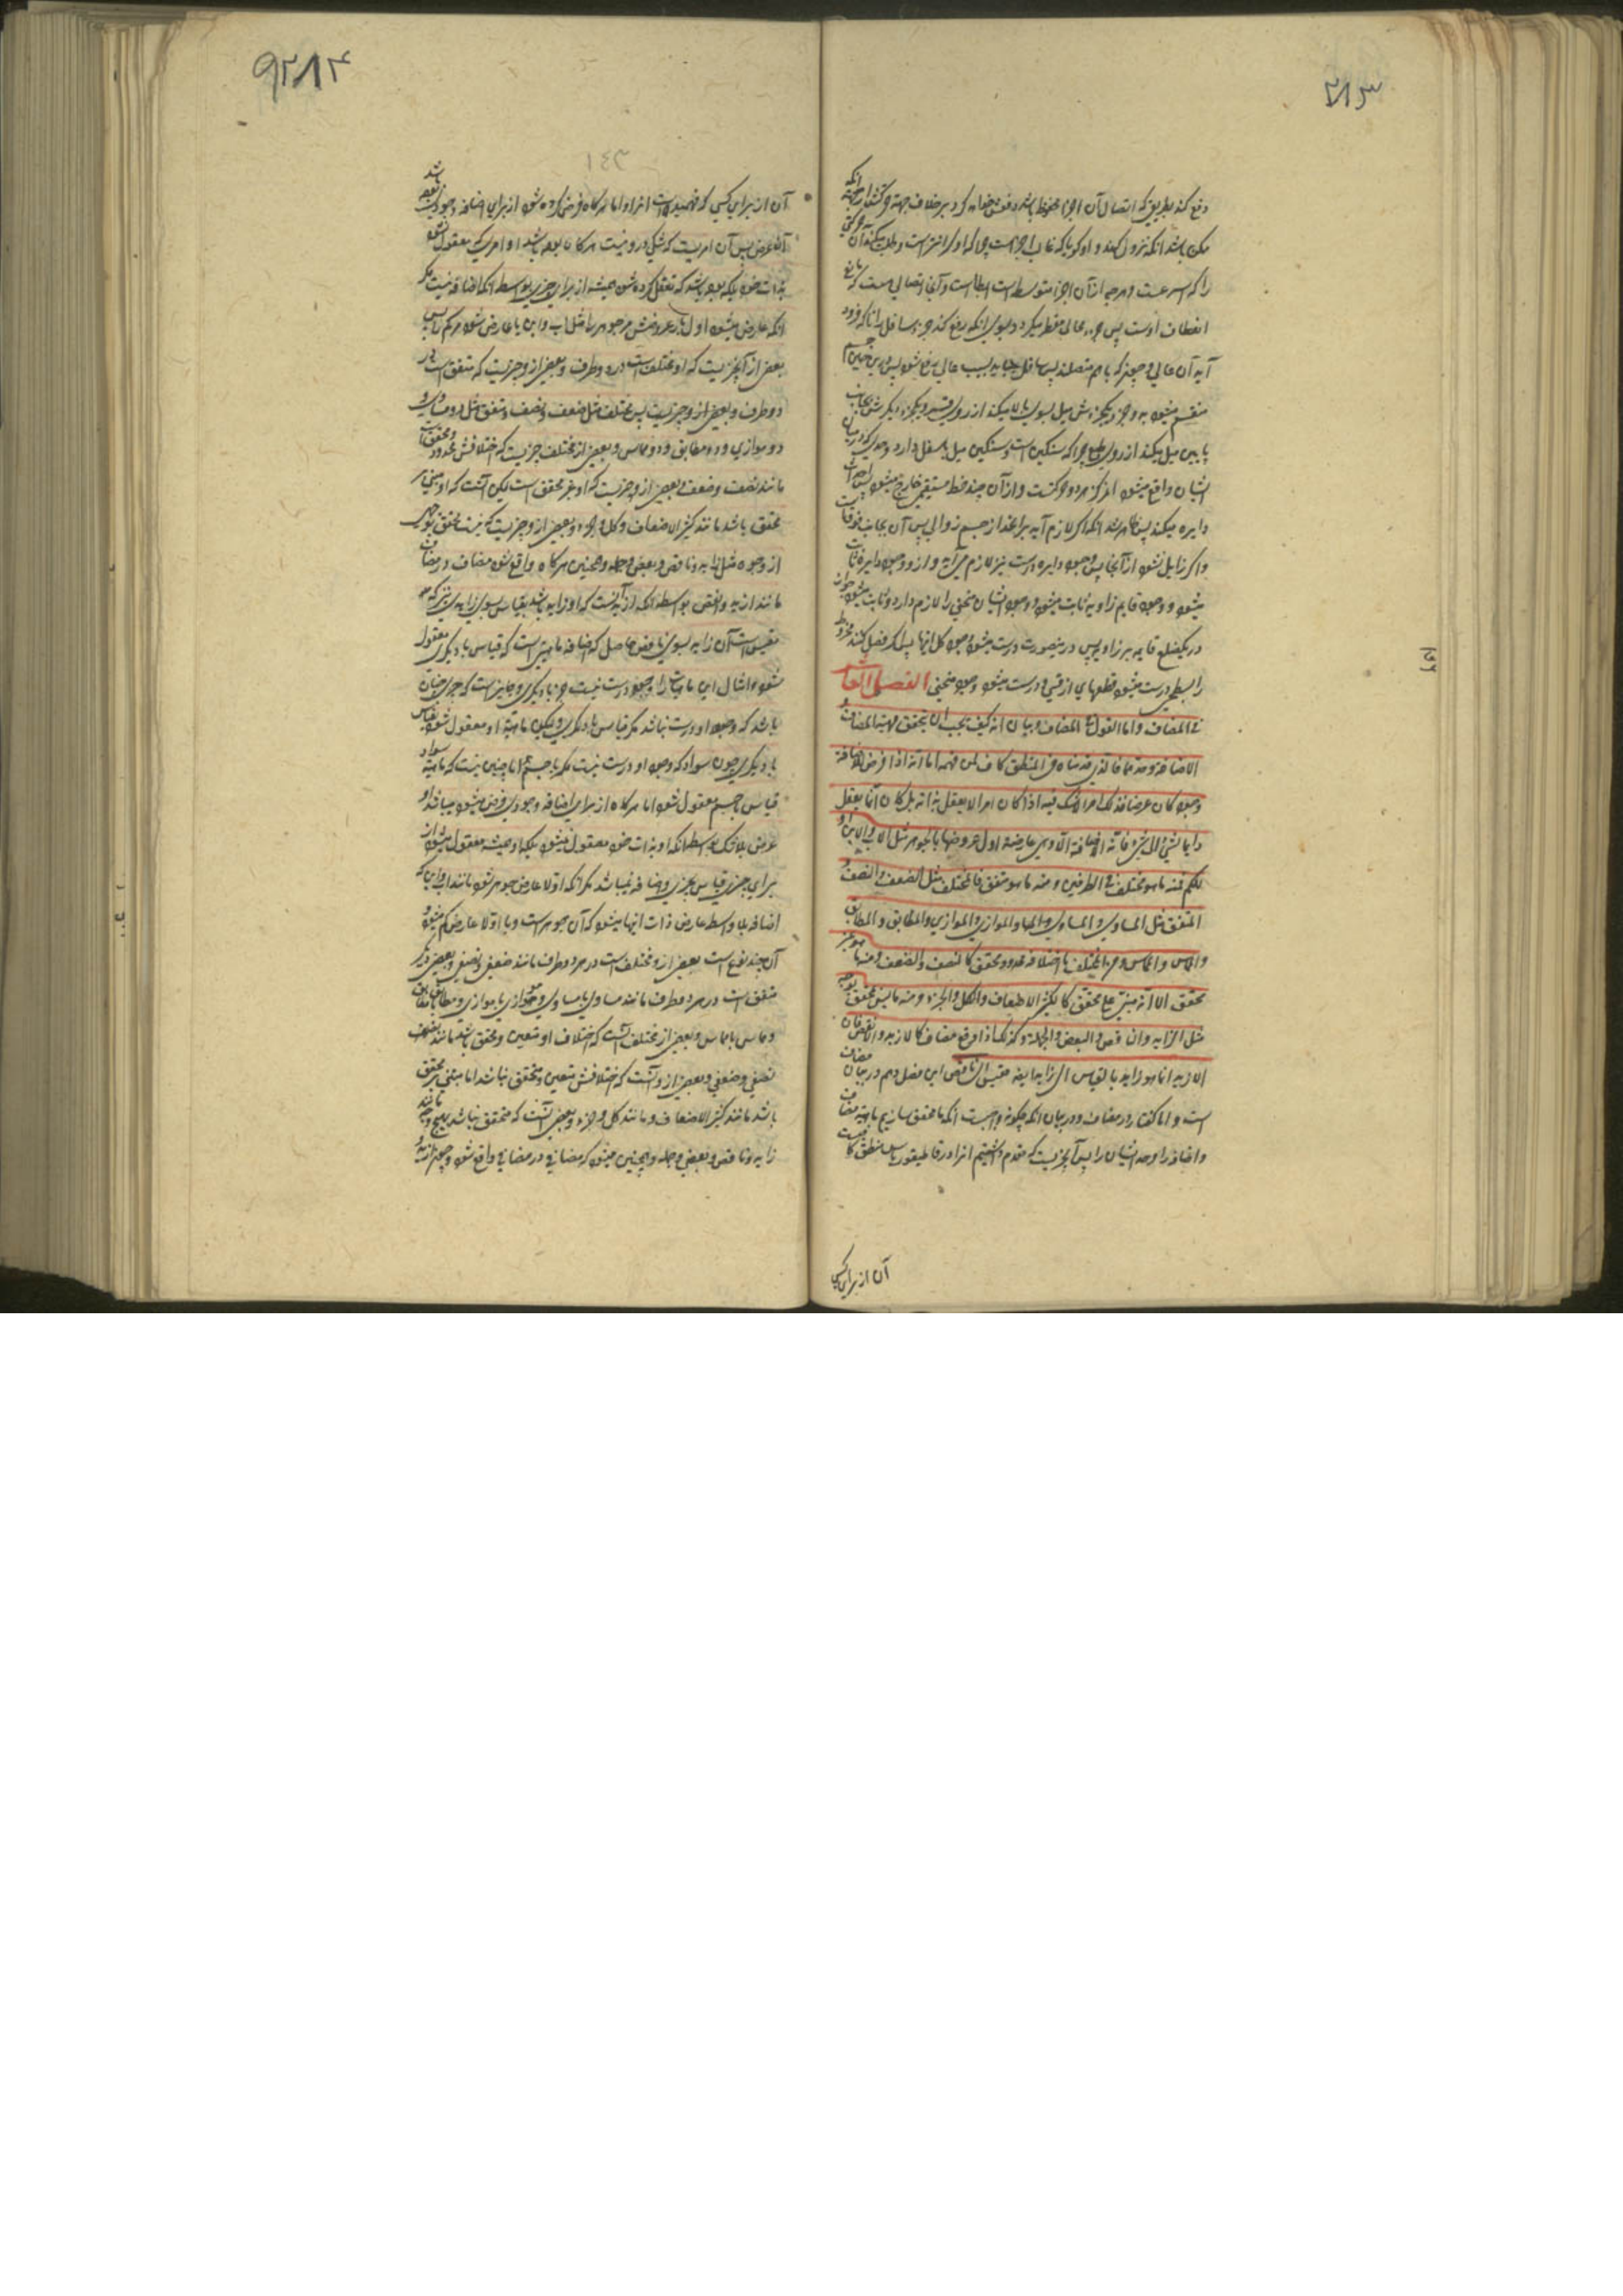 ۳۱۳
دفع کند بطریق که اتصال آن اجزا محفوظ باشد دفعش خواهد کرد بر خلاف جهة حرکتش از جهة انکه
ممکن باشد انکه نزول کند و او کویا که غالب اجزاست چرا که او را نیز است و طلب میکند آن حرکتی
را که اسرعست و هر چه از آن اجزا متوسط است ابطا است و آنجا اتصالی هست که مانع
انعطاف اوست پس جزء عالی مضطر میکردد بسوی انکه دفع کند جزء سافل را تا که فرود
آید آن عالی و چونکه با هم متصلند پس سافل بسبب عالی مندفع شود پس درین حین جسم
منقسم میشود به دو جزء یکجزءش میل بسوی بالا میکند از روی قسر و یکجزء دیکرش بجانب
پایین میل میکند از روی طبع چرا که سنکین است و سنکین میل باسفل دارد و حدی که در میان
ایشان واقع میشود مرکز هر دو حرکتست و از آن حد خط مستقیمی خارج میشود پس احداث
دایره میکند پس ظاهر شد انکه اکر لازم آید بر انحداز جسم زوالی پس آن بجانب فوقست
و اکر زایل نشود از آنجا پس وجود دایره است نیز لازم می آید و از وجود دایره ثابت
میشود و وجود قایم زاویه ثابت میشود و وجود ایشان منحنی را لازم دارد و ثابت میشود جواز
در یکضلع قایم بر زاویه پس درینصورت درست میشود وجود کل اینها پس اکر فصل کنند مخروط
را بسطحی درست میشود قطعهای از قسی و درست میشود وجود منحنی الفصل العاشر
فی المضاف و اما القول فی المضاف و بیان انه کیف یجب ان یتحقق مهیة المضاف و
الاضافة و حدهما فالذی قدمناه فی المنطق کاف لمن فهمه اما انه اذا فرض للاضافة
وجود کان عرضا فذلک امر لا شک فیه اذ کان امرا لا یعقل بذاته بل کان انما یعقل
دایما لشئ الی شئ فانه لا اضافة الا و هی عارضة اول عروضها باالجوهر مثل الاب و الابن او
للکم فمنه ما هو مختلف فی الطرفین و منه ما هو متفق فالمختلف مثل الضعف و النصف و
المتفق مثل المساوی و المساوی و الموازی و الموازی و المطابق و المطابق
و المماس و المماس و من المختلف ما اختلافه محدود و محقق کالنصف و الضعف و منه ما هو غیر
محقق الا انه مبنی علی محقق کالکثیر الاضعاف و الکل و الجزء و منه ما لیس بمحقق بوجه
مثل الزاید و الناقص و البعض و الجملة و کذلک اذا وقع مضاف کالازید و الانقص فان
الازید انما هو زاید بالقیاس الی زاید ایضا مقیس الی ناقص این فصل دهم در بیان مضاف
است و اما کفتار در مضاف و در بیان انکه چکونه واجبست انکه ما محقق سازیم ماهیة مضاف
و اضافه را و حد ایشان را پس آنچیزیست که مقدم داشتیم انرا در قاطیغوریاس منطق کافیست
آن از برای کسی
۳۱۴
۱۴۳
آن از برای کسی که فهمیده است انرا و اما هرکاه فرض کرده شود از برای اضافه وجودیکه باشد
آنکه عرض پس آن امریست که شکی درو نیست هرکاه بوده باشد او امری که معقول نشود
بذات خود بلکه بوده باشد که تعقل کرده شود همیشه از برای چیزی بواسطه انکه اضافه نیست مکر
انکه عارض میشود اول بار عروضش مر جوهر را مثل اب و ابن یا عارض شود مر کم را پس
بعضی از آنچیزیست که او مختلف است در دو طرف و بعضی از و چیزیست که متفق است در
دو طرف و بعضی از و چیزیست پس مختلف مثل ضعف و نصف و متفق مثل دو مساوی و
دو موازی و دو مطابق و دو مماس و بعضی از مختلف چیزیست که اختلافش محدود و محقق است
مانند نصف و ضعف و بعضی از و چیزیست که او غیر محقق است لیکن آنست که او مبنی بر
محقق باشد مانند کثیر الاضعاف و کل و جزء و بعضی از و چیزیست که نیست محقق بوجهی
از وجوه مثل زاید و ناقص و بعض و جمله و همچنین هرکاه واقع شود مضاف در مضاف
مانند ازید و انقص بواسطه انکه ازید آنست که او زاید باشد بقیاس بسوی زایدی نیز که
مقیس است آن زاید بسوی ناقص حاصل که اضافه ماهیتی است که قیاس با دیکری معقول
شود و امثال این ماهیات را وجود درست نیست جز با دیکری و جایز است که چیزی چنان
باشد که وجود او درست نباشد مکر قیاس با دیکری و لیکن ماهیة او معقول شود بی قیاس
با دیکری چون سواد که وجود او درست نیست مکر با جسم اما چنین نیست که ماهیة سواد
قیاس با جسم معقول شود اما هرکاه از برای اضافه وجودی فرض میشود میباشد او
عرض بلا شک بواسطه انکه او بذات خود معقول نمیشود بلکه او همیشه معقول میشود از
برای چیزی قیاس بچیزی و اضافه نمیباشد مکر انکه اولا عارض جوهر شود مانند اب و ابن که
اضافه بلا واسطه عارض ذات اینها میشود که آن جوهر است و یا اولا عارض کم میشود و
آن چند نوع است بعضی از و مختلف است در هر دو طرف مانند ضعفی و نصفی و بعضی دیکر
متفق است در هر دو طرف مانند مساوی با مساوی و موازی با موازی و مطابق با مطابق
و مماس با مماس و بعضی از مختلف آنست که اختلاف او متعین و محقق باشد مانند نصف
نصفی و ضعفی و بعضی از و آنست که اختلافش متعین و متحقق نباشد اما مبنی بر محقق
باشد مانند کثیر الاضعاف و مانند کل و جزء و بعضی آنست که متحقق نباشد بهیچ وجه مانند
زاید و ناقص و بعض و جمله و همچنین میشود که مضافی در مضافی واقع شود و چون ازید و